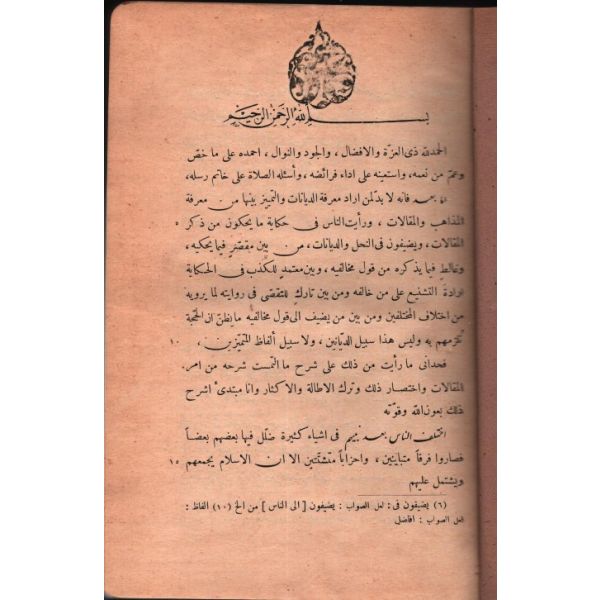 بسم الله الرحمن الرحيم
الحمدلله ذى العزّة والافضال ، والجود والنوال ، احمده على ما خصّ
وعمّ من نعمه، واستعينه على اداء فرائضه، وأسئله الصلاة على خاتم رسله،
اما بعد فانه لا بدّ لمن اراد معرفة الديانات والتمييز بينها من معرفة
المذاهب والمقالات ، ورأيت الناس فى حكاية ما يحكون من ذكر ٥
المقالات ، ويضيفون فى النحل والديانات، من بين مقصّر فيما يحكيه،
وغالطٍ فيما يذكره من قول مخالفيه ، وبين معتمدٍ للكذب فى الحكاية
ارادة التشنيع على من خالفه ومن بين تاركٍ للتقصّى فى روايته لما يرويه
من اختلاف المختلفين ومن بين من يضيف الى قول مخالفيه ما يظنّ ان الحجّة
تلزمهم به وليس هذا سبيل الديّانين ، ولا سبيل ألفاظ المتميّزين ، ١٠
فحدانى ما رأيت من ذلك على شرح ما التمست شرحه من امر
المقالات واختصار ذلك وترك الاطالة والاكثار وانا مبتدئ اشرح
ذلك بعون الله وقوّته
اختلف الناس بعد نبيهم فى اشياء كثيرة ضلّل فيها بعضهم بعضاً
فصاروا فرقاً متباينين ، واحزاباً متشتّتين الا ان الاسلام يجمعهم ١٥
ويشتمل عليهم
(٦) يضيفون فى : لعل الصواب : يضيفون [ الى الناس ] من الخ (١٠) الفاظ :
لعل الصواب : افاضل